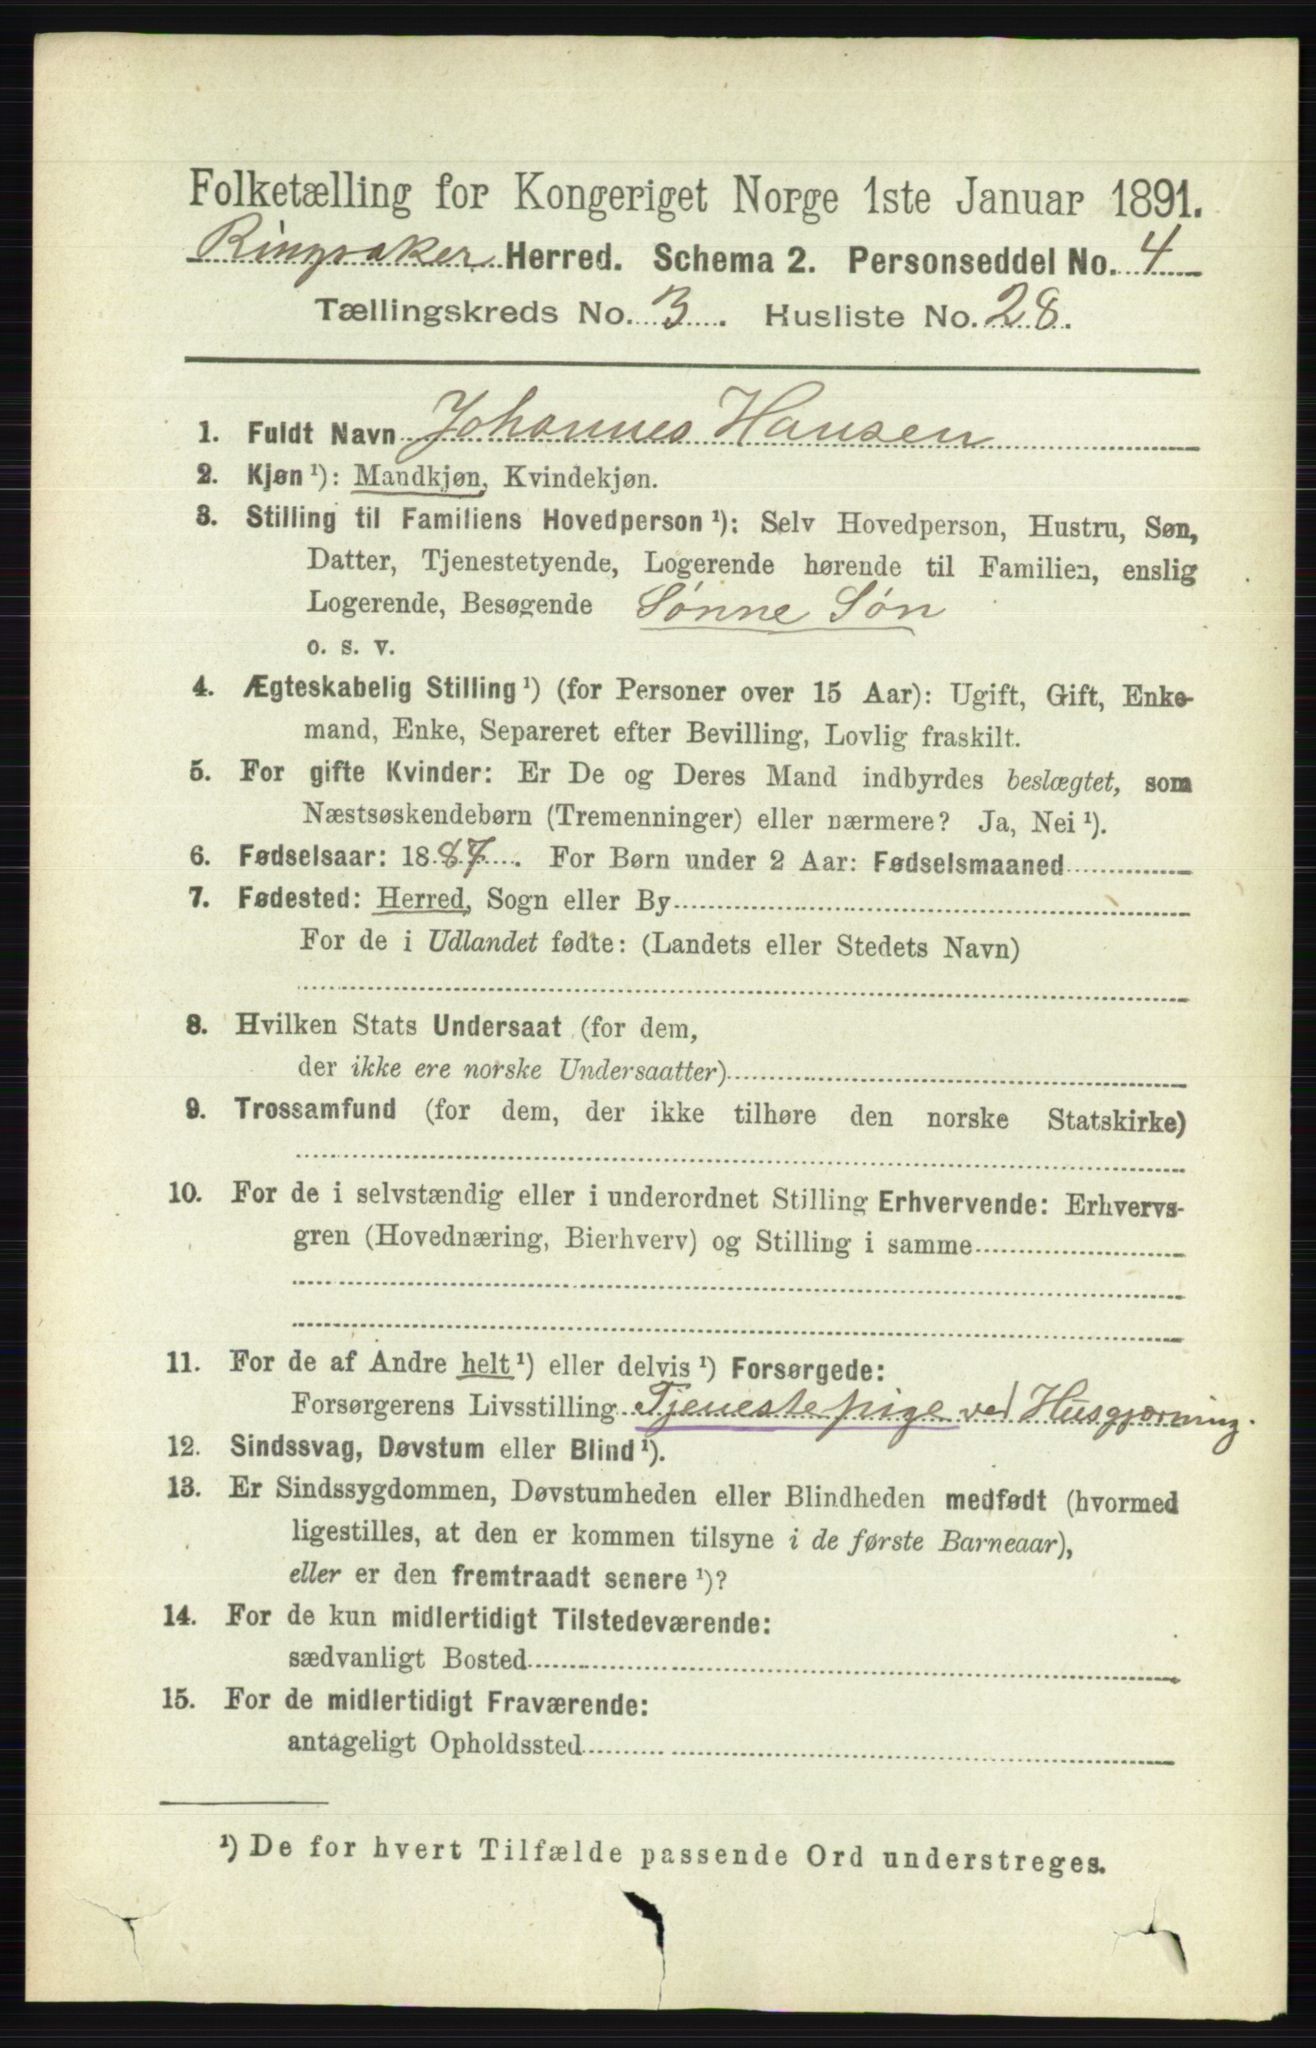 Folketælling for Kongeriget Norge 1ste Januar 1891.
Ringsaker Herred. Schema 2. Personseddel No. 4
Tællingskreds No. 3. Husliste No. 28.
1. Fuldt Navn Johannes Hansen
2. Kjøn ¹): Mandkjøn, Kvindekjøn.
3. Stilling til Familiens Hovedperson ¹): Selv Hovedperson, Hustru, Søn,
Datter, Tjenestetyende, Logerende hørende til Familien, enslig
Logerende, Besøgende Sønne Søn
o. s. v.
4. Ægteskabelig Stilling ¹) (for Personer over 15 Aar): Ugift, Gift, Enke-
mand, Enke, Separeret efter Bevilling, Lovlig fraskilt.
5. For gifte Kvinder: Er De og Deres Mand indbyrdes beslægtet, som
Næstsøskendebørn (Tremenninger) eller nærmere? Ja, Nei ¹).
6. Fødselsaar: 1887. For Børn under 2 Aar: Fødselsmaaned
7. Fødested: Herred, Sogn eller By
For de i Udlandet fødte: (Landets eller Stedets Navn)
8. Hvilken Stats Undersaat (for dem,
der ikke ere norske Undersaatter)
9. Trossamfund (for dem, der ikke tilhøre den norske Statskirke)
10. For de i selvstændig eller i underordnet Stilling Erhvervende: Erhvervs-
gren (Hovednæring, Bierhverv) og Stilling i samme
11. For de af Andre helt ¹) eller delvis ¹) Forsørgede:
Forsørgerens Livsstilling Tjenestepige ved Husgjerning.
12. Sindssvag, Døvstum eller Blind ¹).
13. Er Sindssygdommen, Døvstumheden eller Blindheden medfødt (hvormed
ligestilles, at den er kommen tilsyne i de første Barneaar),
eller er den fremtraadt senere ¹)?
14. For de kun midlertidigt Tilstedeværende:
sædvanligt Bosted
15. For de midlertidigt Fraværende:
antageligt Opholdssted
¹) De for hvert Tilfælde passende Ord understreges.